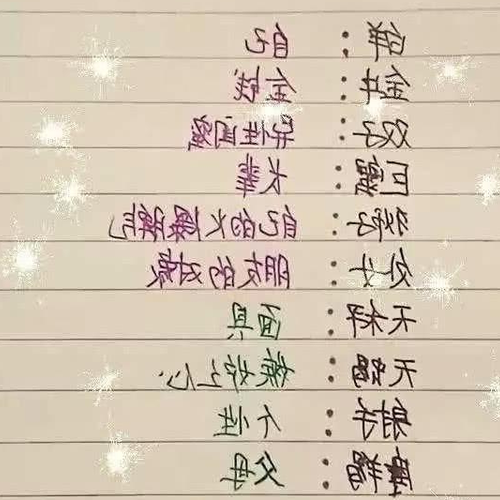 白羊：自己
金牛：金钱
双子：异性
巨蟹：长辈
狮子：自己的火爆脾气
处女：朋友的
天秤：面具
天蝎：嫉妒之心
射手：个性
摩羯：父母